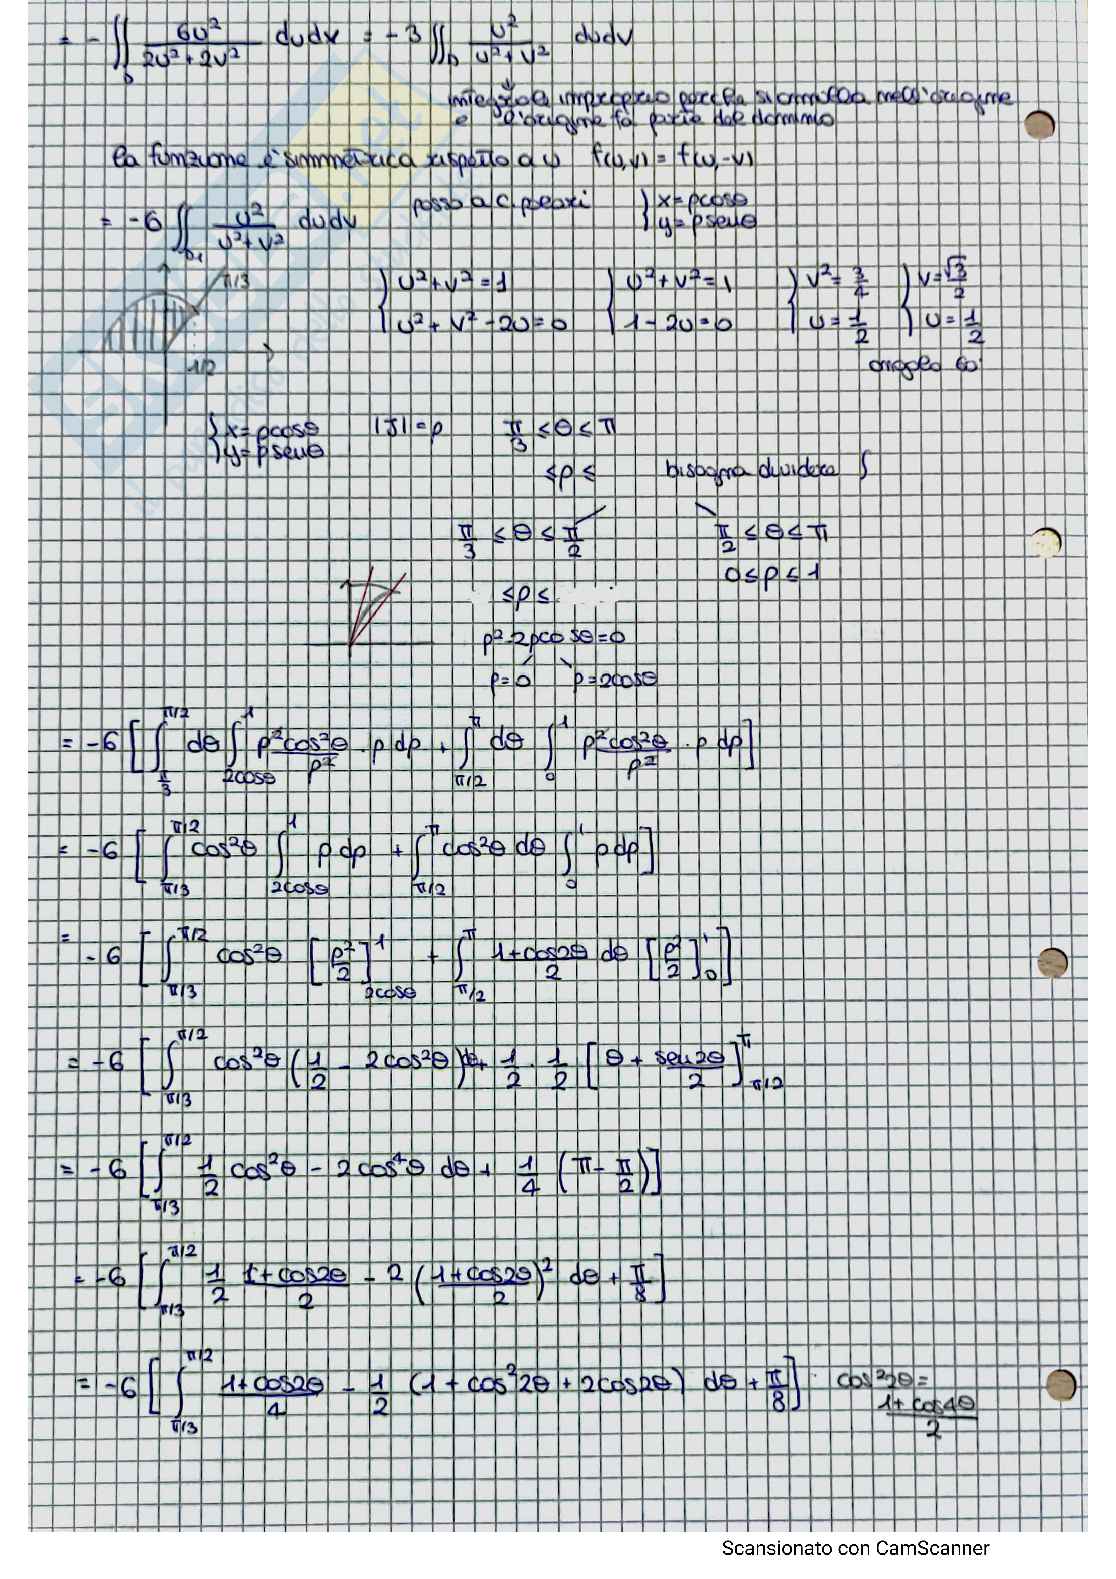 = - ∬_D 6u²/(2u²+2v²) dudx = -3 ∬_D u²/(u²+v²) dudv
↓
integrale improprio perché si annulla nell'origine
e l'origine fa parte del dominio
la funzione è simmetrica rispetto a u f(u,v) = f(u,-v)
= -6 ∬_D1 u²/(u²+v²) dudv passo a c. polari { x=ρcosθ
y=ρsenθ
π/3
{ u²+v²=1
u²+v²-2u=0 { u²+v²=1
1-2u=0 { v²=3/4
u=1/2 { v=√3/2
u=1/2
1/2
angolo 60°
{ x=ρcosθ
y=ρsenθ |J|=ρ π/3 ≤θ≤ π
≤ρ≤ bisogna dividere ∫
π/3 ≤θ≤ π/2 π/2 ≤θ≤ π
0≤ρ≤1
≤ρ≤
ρ²-2ρcosθ=0
ρ=0 ρ=2cosθ
= -6 [ ∫_{π/3}^{π/2} dθ ∫_{2cosθ}^{1} ρ²cos²θ/ρ² · ρ dρ + ∫_{π/2}^{π} dθ ∫_0^1 ρ²cos²θ/ρ² · ρ dρ ]
= -6 [ ∫_{π/3}^{π/2} cos²θ ∫_{2cosθ}^{1} ρ dρ + ∫_{π/2}^{π} cos²θ dθ ∫_0^1 ρ dρ ]
= -6 [ ∫_{π/3}^{π/2} cos²θ [ρ²/2]_{2cosθ}^{1} + ∫_{π/2}^{π} (1+cos2θ)/2 dθ [ρ²/2]_0^1 ]
= -6 [ ∫_{π/3}^{π/2} cos²θ (1/2 - 2cos²θ) dθ + 1/2 · 1/2 [θ + sen2θ/2]_{π/2}^{π}
= -6 [ ∫_{π/3}^{π/2} 1/2 cos²θ - 2cos⁴θ dθ + 1/4 (π - π/2) ]
= -6 [ ∫_{π/3}^{π/2} 1/2 (1+cos2θ)/2 - 2 ((1+cos2θ)/2)² dθ + π/8 ]
= -6 [ ∫_{π/3}^{π/2} (1+cos2θ)/4 - 1/2 (1 + cos²2θ + 2cos2θ) dθ + π/8 ] cos²2θ =
(1+cos4θ)/2
Scansionato con CamScanner